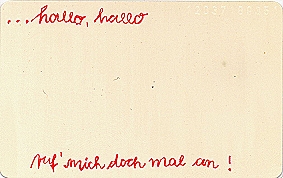 ...hallo, hallo
ruf' mich doch mal an !